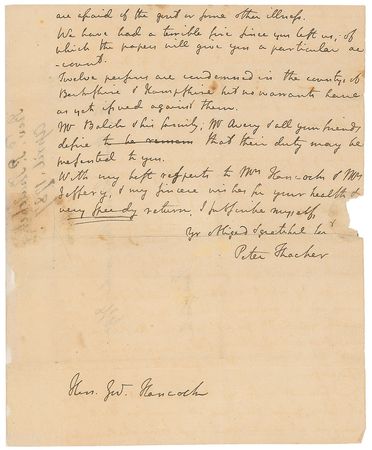 are afraid of the gout or some other illness.
We have had a terrible fire since you left us; of
which the papers will give you a particular ac
-count.
Twelve persons are condemned in the countys of
Berkshire & Hampshire but no warrants have
as yet issued against them.
Mr Balch & his family, Mr Avery & all your friends
desire to be that their duty may be
presented to you.
With my best respects to Mrs Hancock & Mrs
Jeffery, & my sincere wishes for your health &
very speedy return, I subscribe myself,
Yr obliged & grateful Servt
Peter Thacher
Hon. Govr Hancock
April 1787